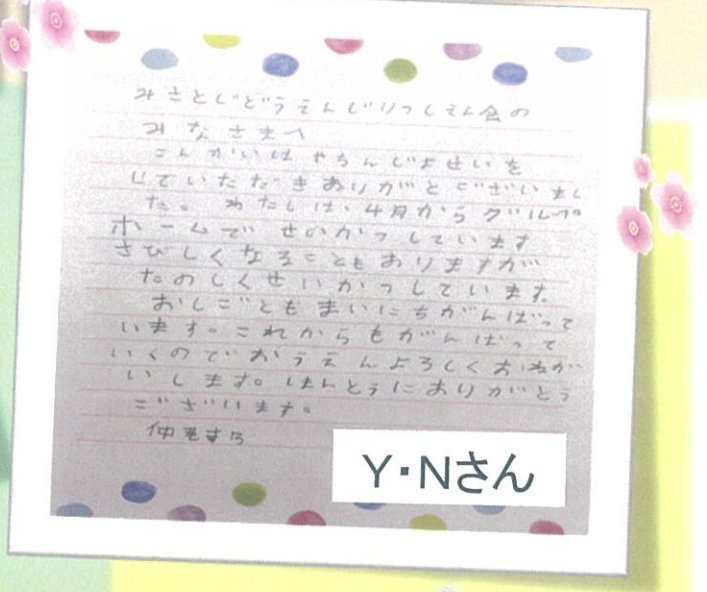 みさとじどうえんじりつしえん会の
みなさまへ
こんかいは やちんじょせいを
していただきありがとございまし
た。 わたしは、4月からグループ
ホームで せいかつしています
さびしくなることもありますが
たのしくせいかつしています。
おしごともまいにちがんばって
います。これからもがんばって
いくのでおうえんよろしくおねが
いします。ほんとうにありがとう
ございます。
Y・Nさん